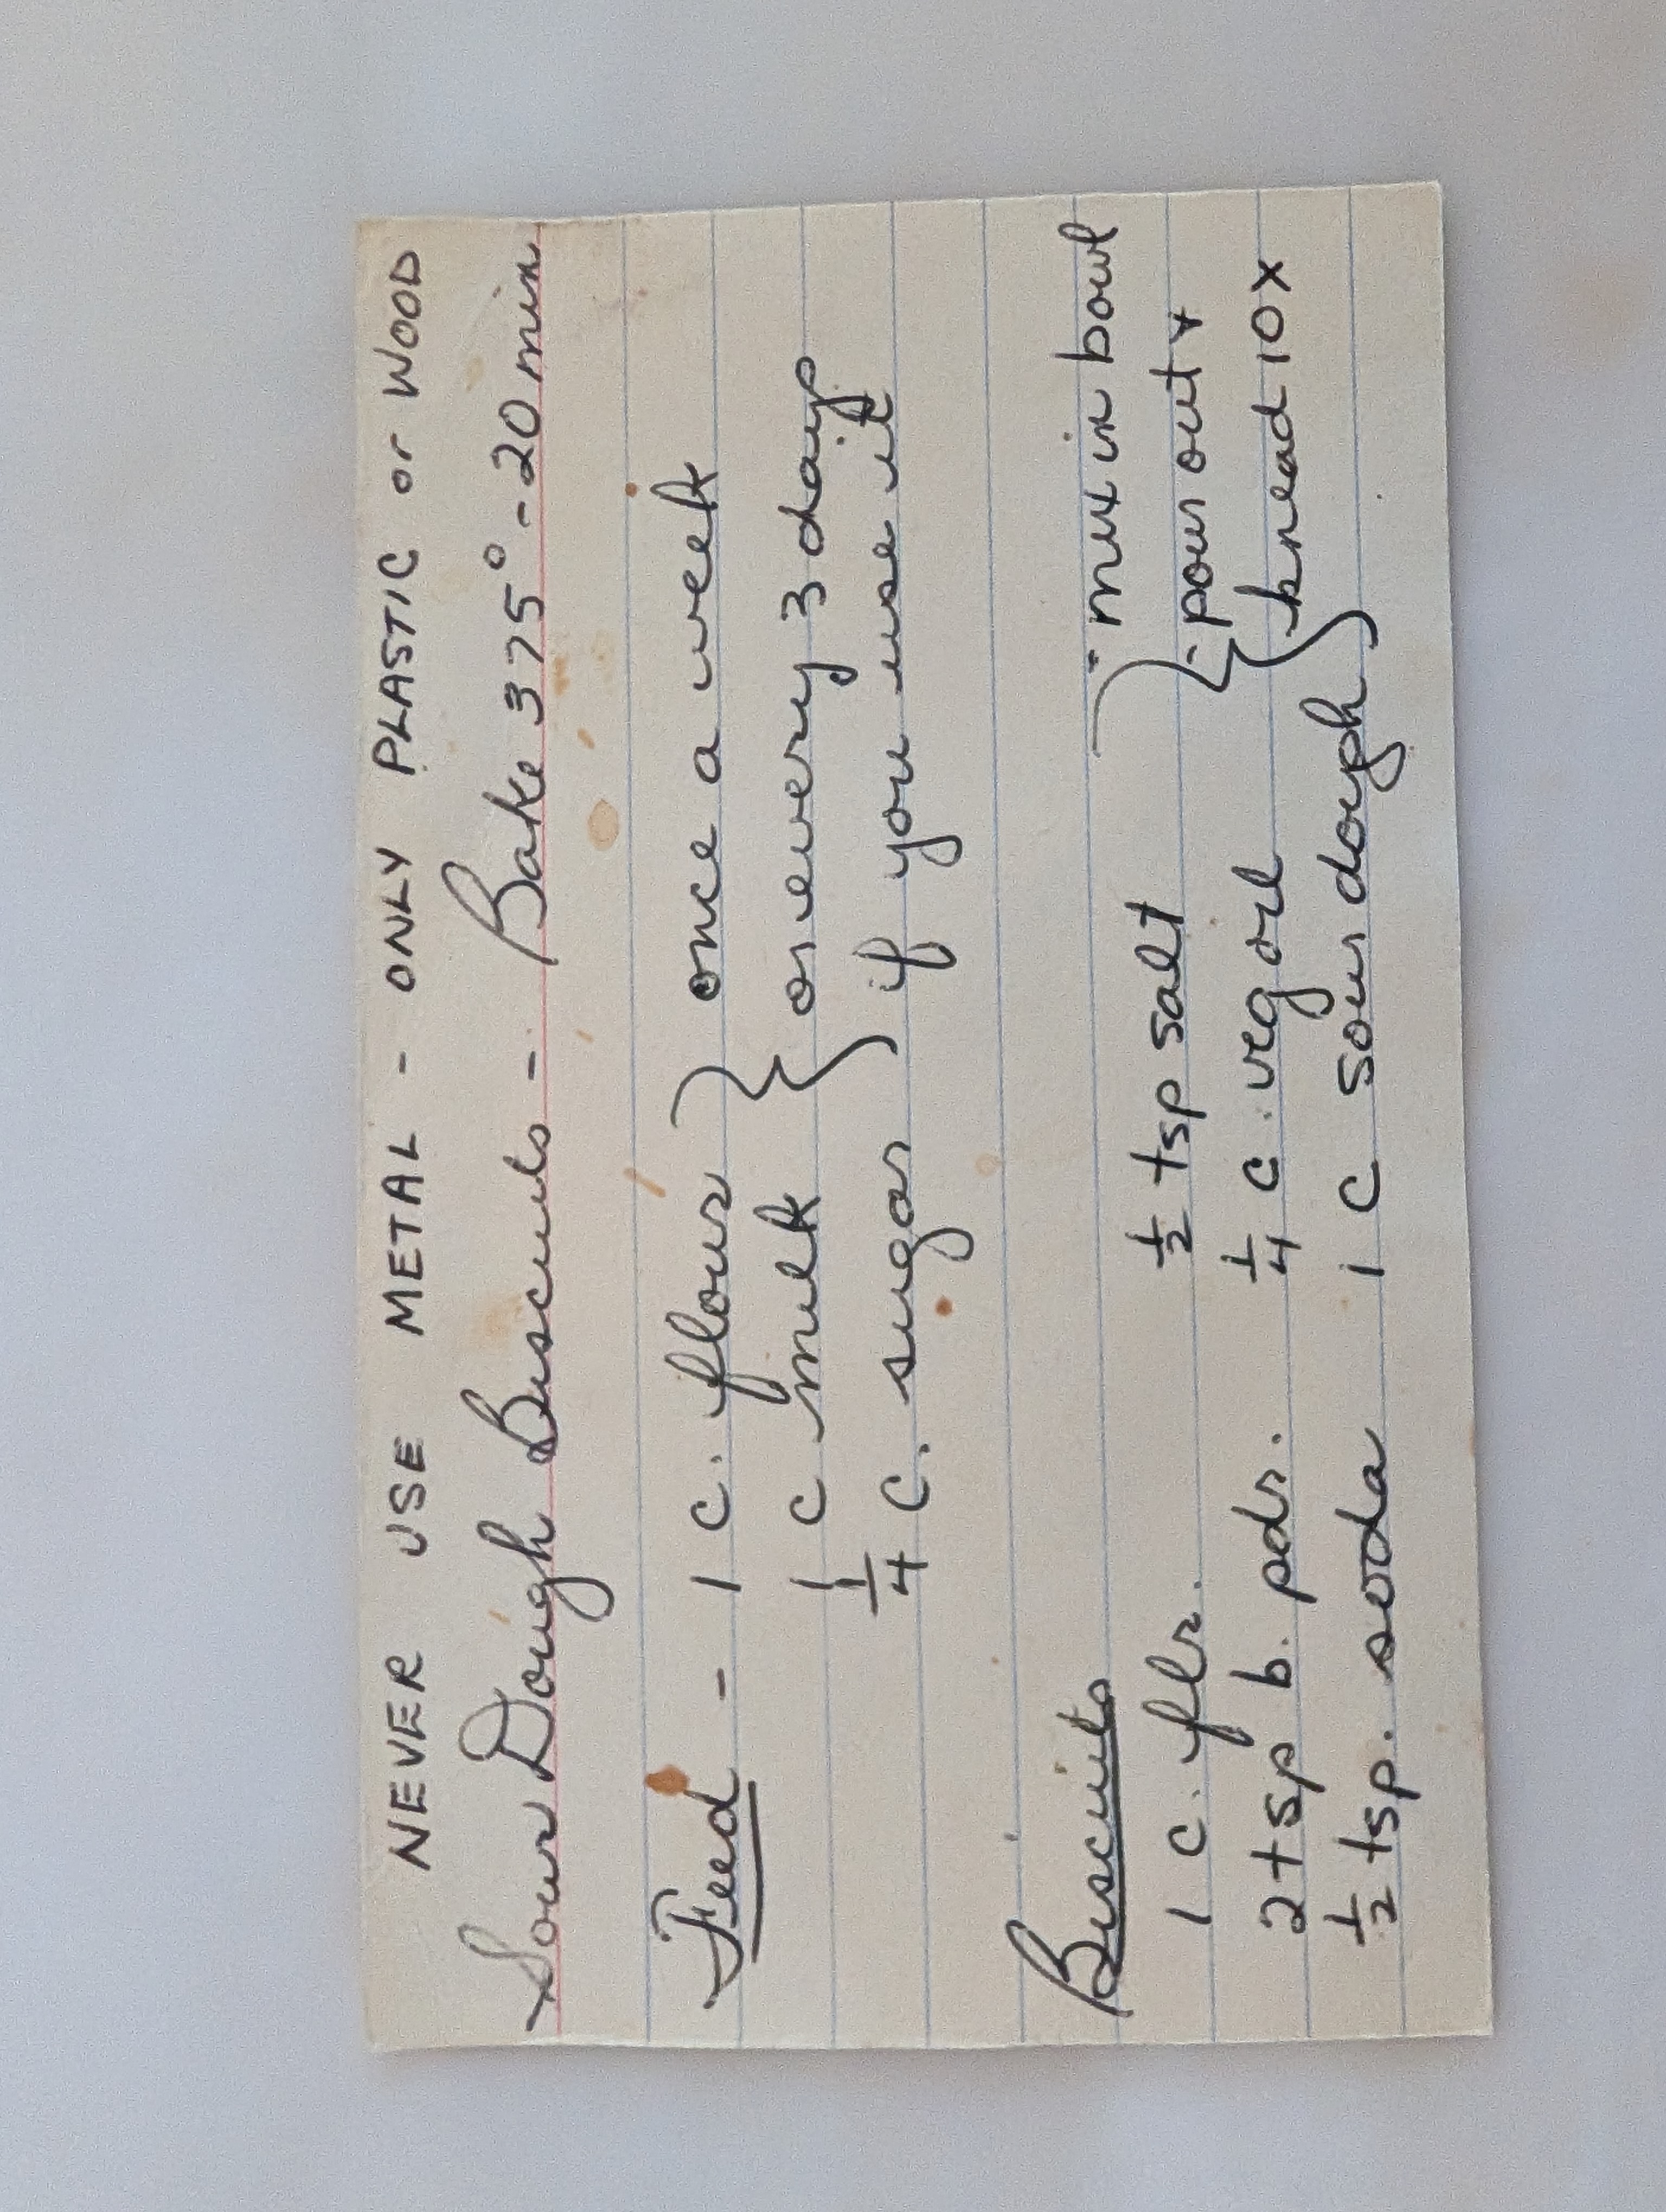 NEVER USE METAL - ONLY PLASTIC or WOOD
Sour Dough Biscuits - Bake 375° - 20 min
Feed - 1 c. flour once a week
1 c milk or every 3 days
1/4 c. sugar if you use it
Biscuits - mix in bowl
1 c. flr. 1/2 tsp salt - pour out +
2 tsp b. pdr. 1/4 c. veg oil knead 10X
1/2 tsp. soda 1 c sour dough